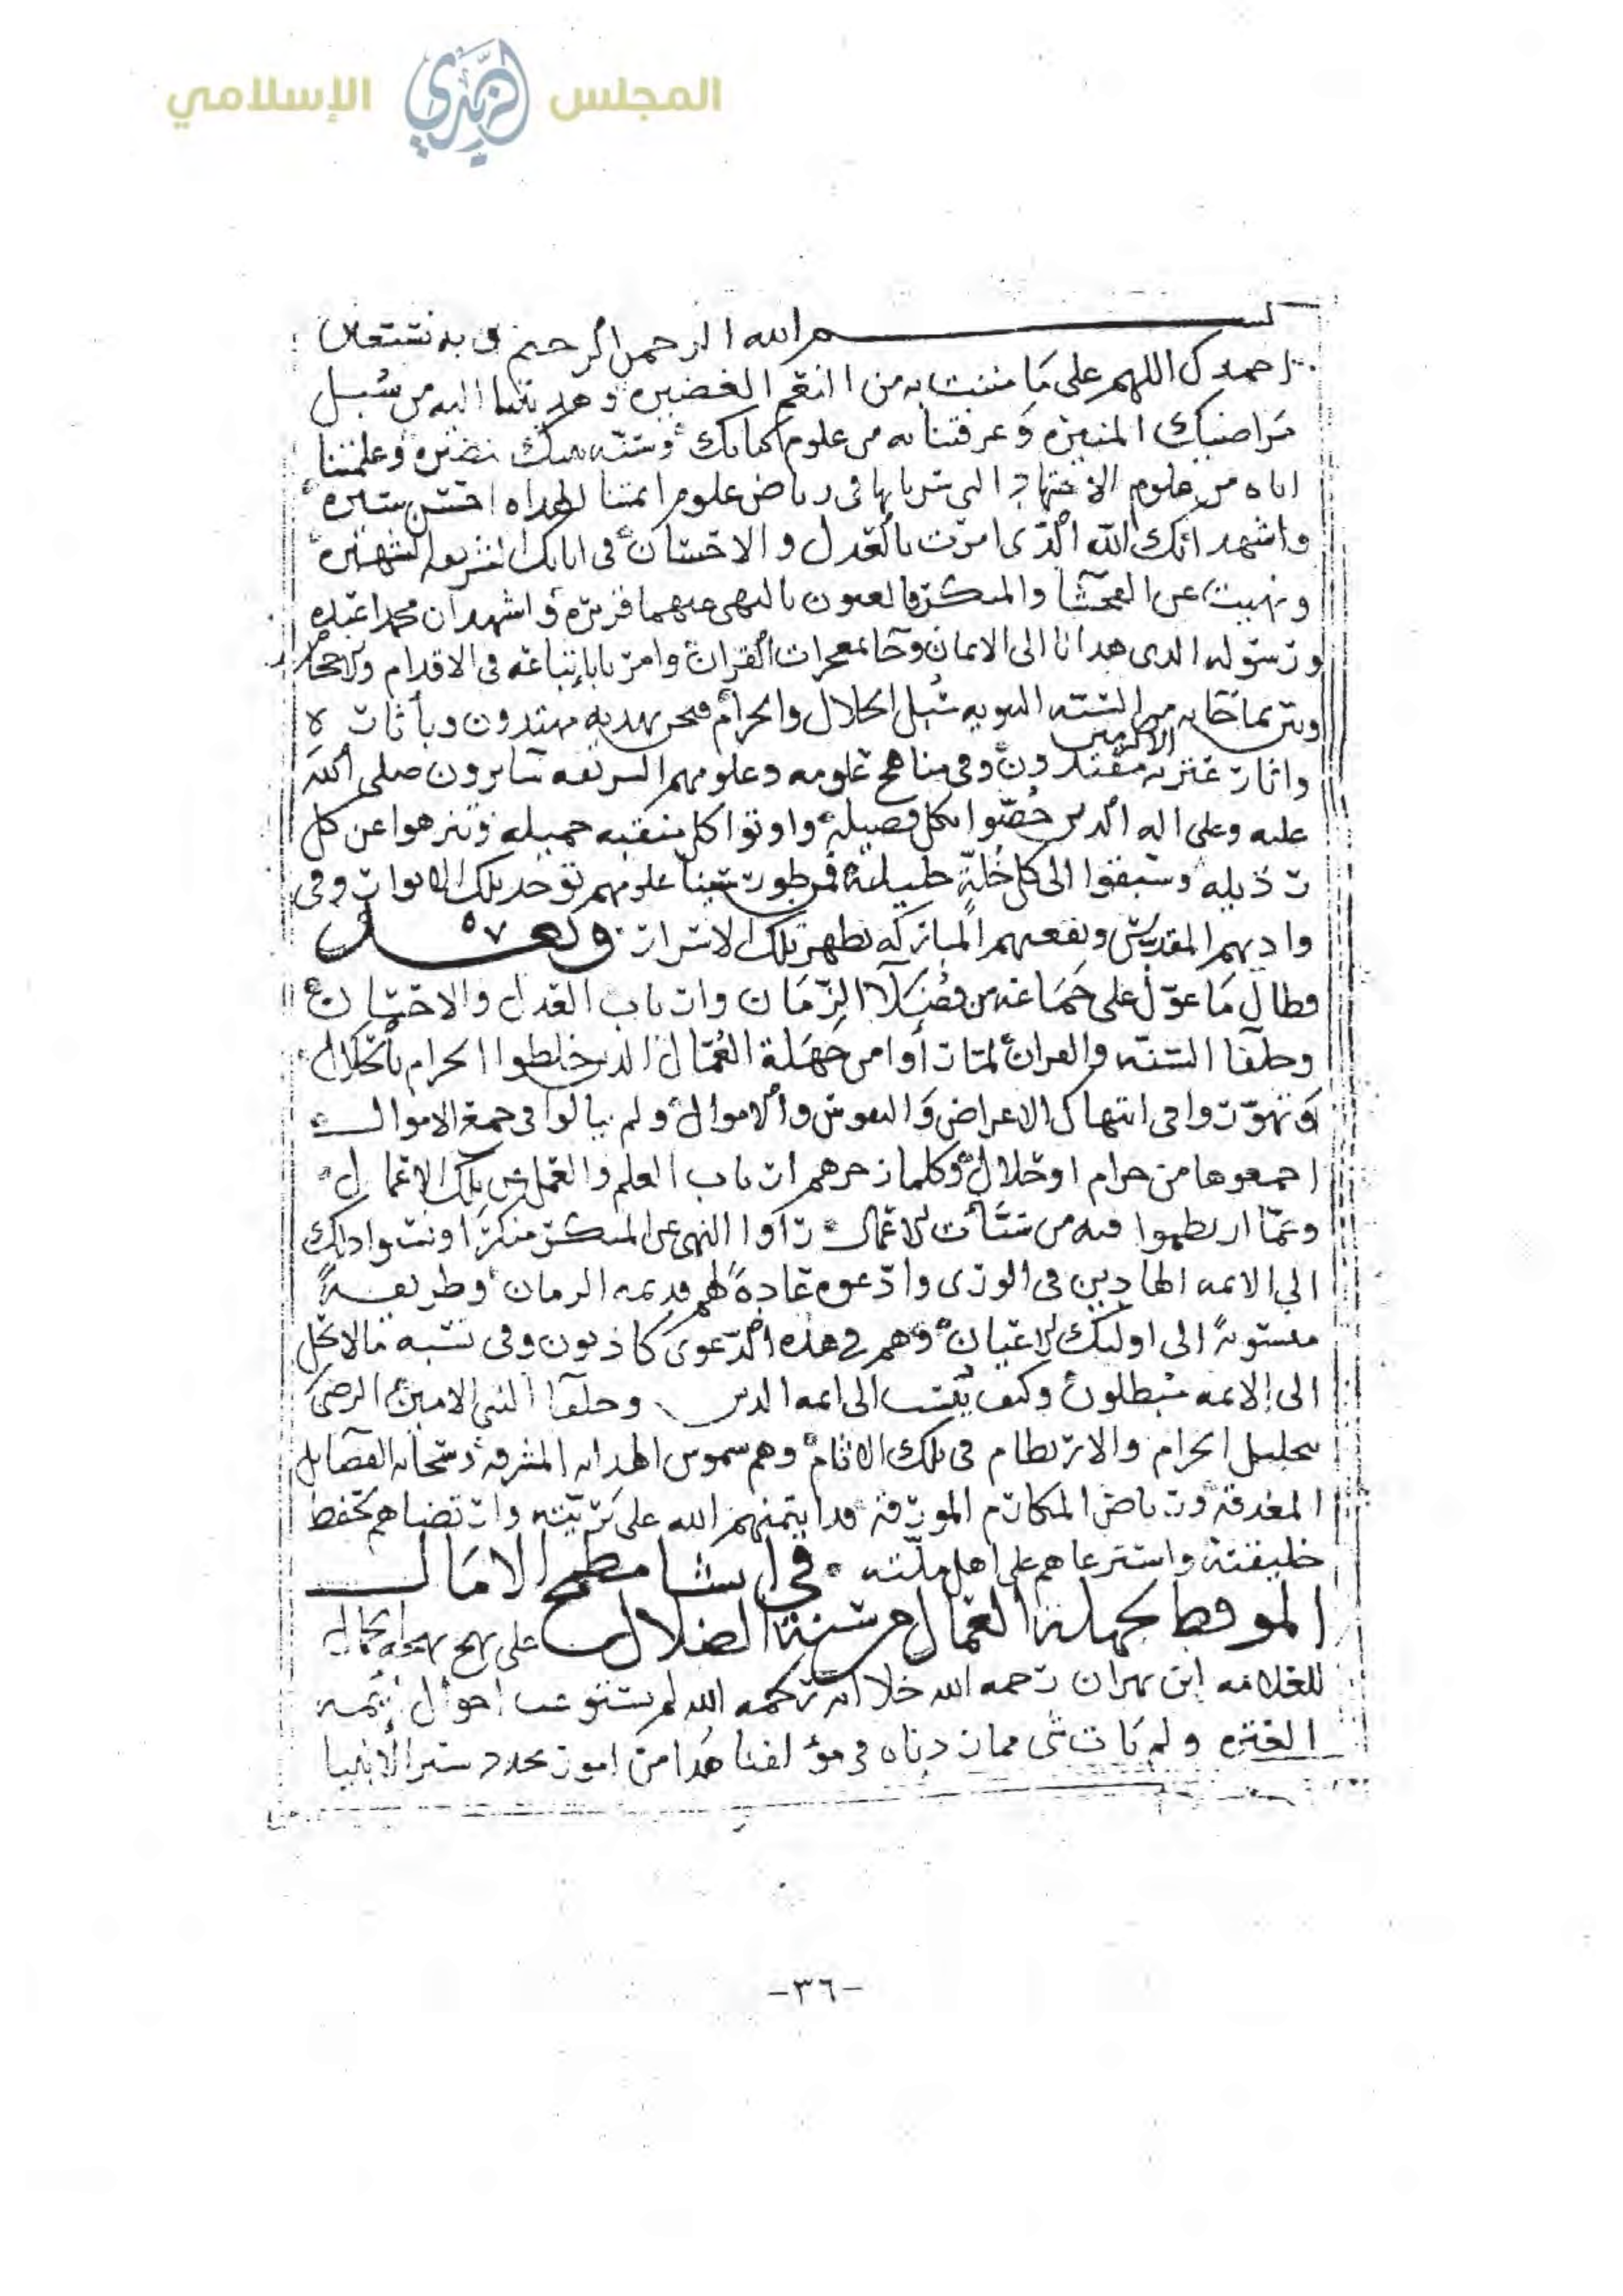 المجلس الزيدي الإسلامي
بسم الله الرحمن الرحيم وبه نستعين
احمدك اللهم على ما مننت به من النعم الغضيره وهديتنا اليه من سبل
مراضيك المنيره وعرفتنا به من علوم كتابك وسنه نبيك وعلمتنا
اياه من علوم الاجتهاد التي سرنا بها في رياض علوم ايمتنا الهداه احسن سيره
واشهد انك الله الذي امرت بالعدل والاحسان في اياتك الشهيره
ونهيت عن الفحشا والمنكر فالعيون بالنهي عنهما قريره واشهد ان محمدا عبده
ورسوله الذي هدانا الى الايمان وجا بمعجزات القران وامرنا باتباعه في الاقدام والاحجام
وبين بما جا به من السنه النبويه سبل الحلال والحرام فنحن بهديه مهتدون وباثاره
واثار عترته الاكرمين مقتدون وفي مناهج علومه وعلومهم الشريفه سايرون صلى الله
عليه وعلى اله الذين خصوا بكل فضيله واوتوا كل منقبه جميله وتنزهوا عن كل
رذيله وسبقوا الى كل خلة جليلة فمن طور سينا علومهم توخذ تلك الانوار وفي
واديهم المقدس وبقعتهم المباركه تظهر تلك الاسرار وبعد
فطال ما عول علي جماعه من فضلا الزمان وارباب العدل والاحسان
وحلفا السنه والقران لما راوا من جهلة العمال الذين خلطوا الحرام بالحلال
وتهوروا في انتهاك الاعراض والنفوس والاموال ولم يبالوا في جمع الاموال
اجمعوها من حرام او حلال وكلما زجرهم ارباب العلم والعمل عن تلك الاعمال
وعما ارتطموا فيه من سيات الاعمال راوا النهي عن المنكر منكرا ونسبوا ذلك
الى الايمه الهادين في الورى وادعوه عادة لهم قديمه الزمان وطريقة
منسوبة الى اوليك الاعيان وهم في هذه الدعوى كاذبون وفي نسبه ما لا يحل
الى الايمه مبطلون وكيف ينسب الى ايمه الدين وحلفا النبي الامين الرضى
بتحليل الحرام والارتطام في تلك الاثام وهم شموس الهدايه المشرقه وسحايب الفضايل
المغدقه ورياض المكارم المورقه قد ايتمنهم الله على بريته وارتضاهم لحفظ
خليقته واسترعاهم على اهل ملته في انشا مطمح الامال
الموقظ لجهلة العمال من سنة الضلال على نهج
للعلامه ابن بهران رحمه الله خلا انه رحمه الله لم يستوعب احوال ايمه
العتره ولم يات بشي مما زدناه في مؤلفنا هذا من امور سير الانبيا
-٣٦-